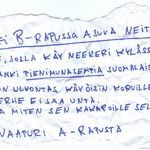 EI B-RAPUSSA ASUVA NEITI
, JOLLA KÄY NEEKERI KYLÄSSÄ
ANKI PIENIMUNASEMPIA SUOMALAIS
N ULVONTAS KÄVISIN KORVILLE
ERHE EI SAA UNTA.
A MITEN SEN KAKAROILLE SEL
VAAPURI A-RAPUSTA